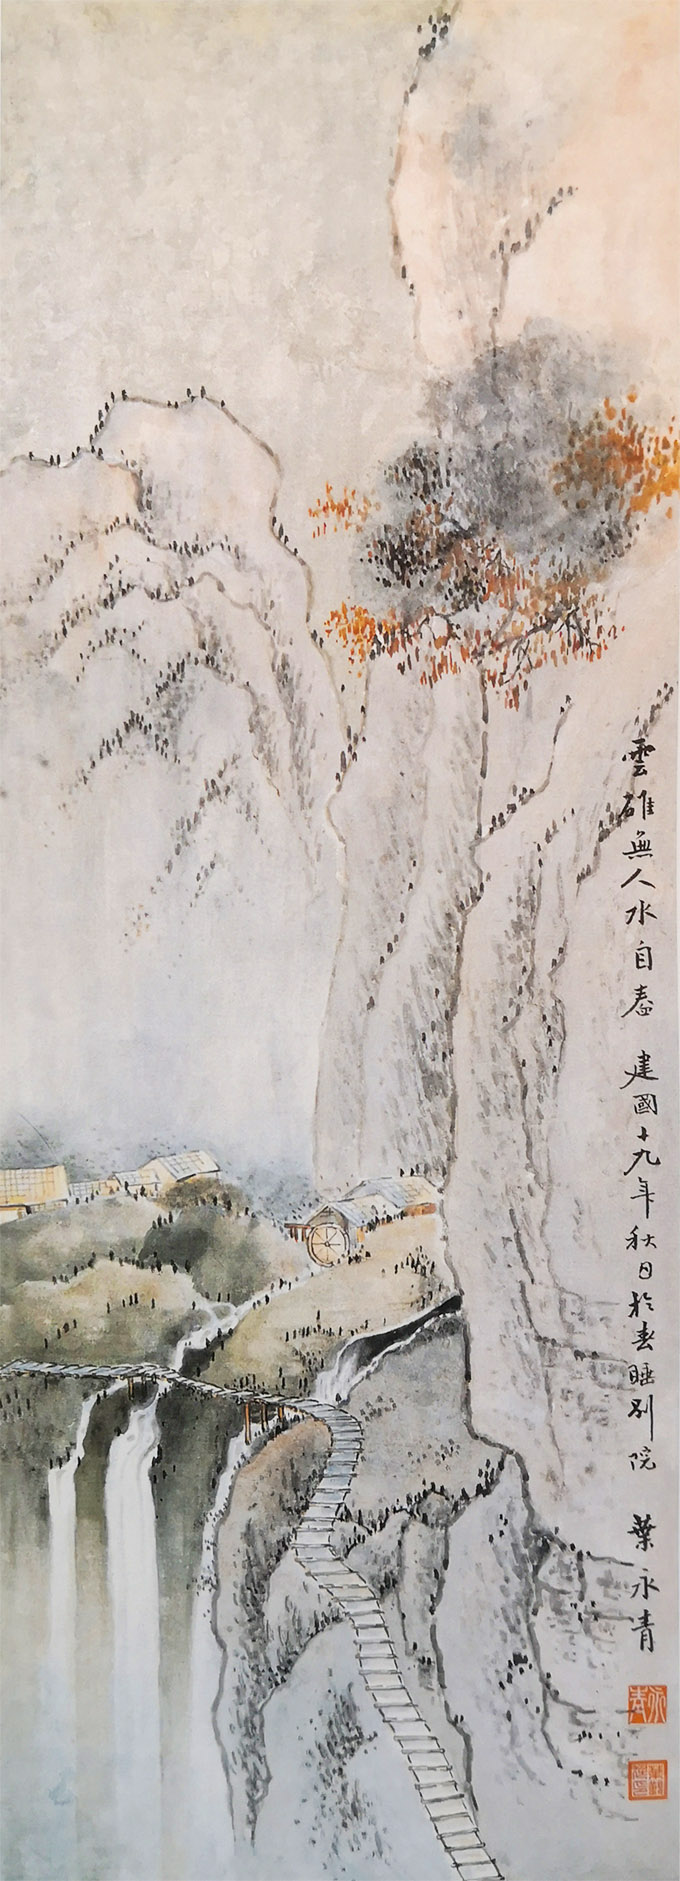 雲碓無人水自舂 建國十九年秋日於春睡別院 葉永青
永青